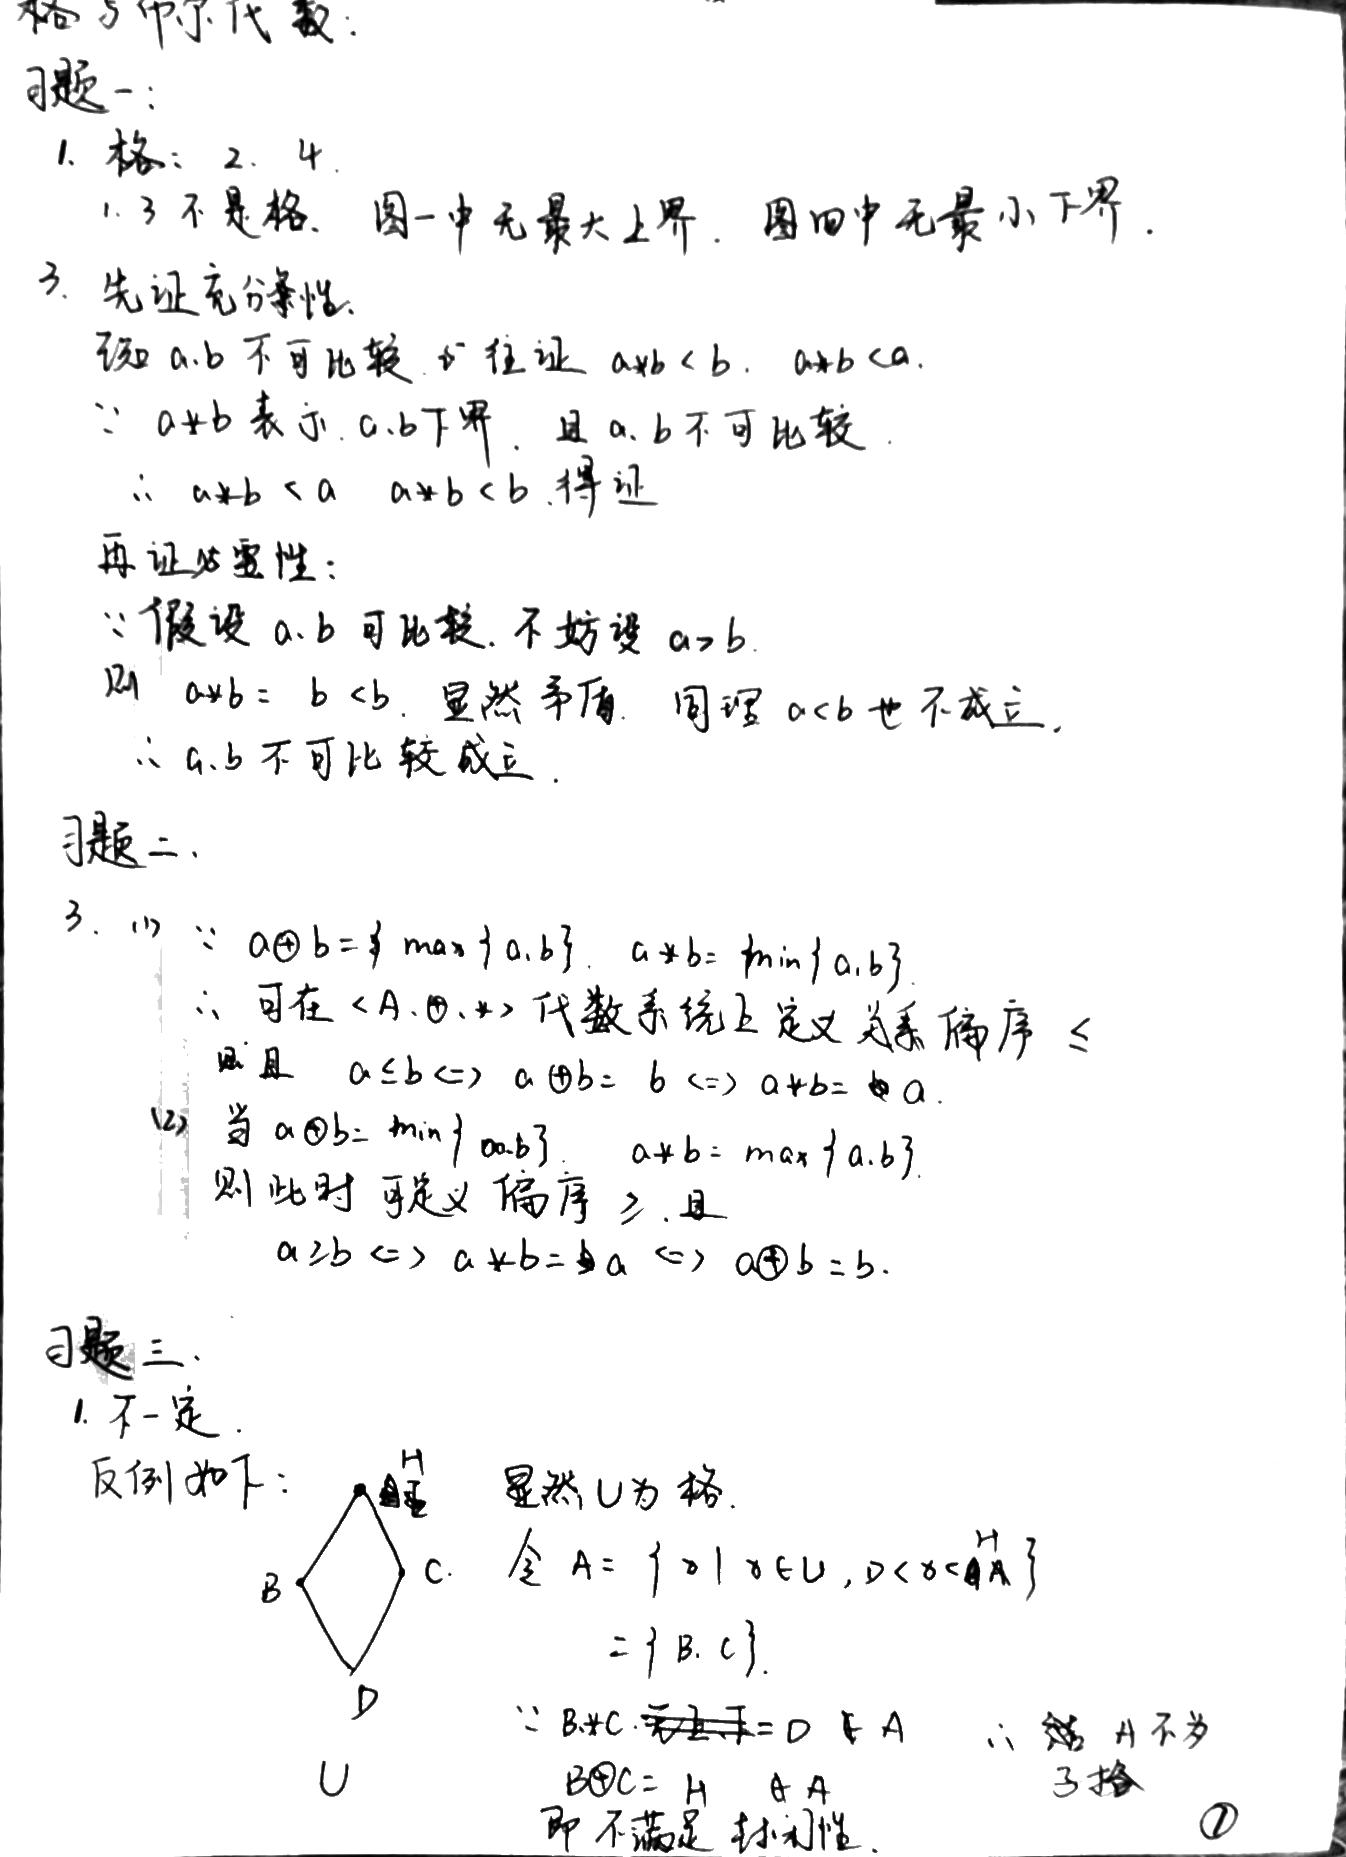 格与布尔代数:
习题一:
1. 格: 2. 4.
1. 3 不是格. 图一中无最大上界. 图四中无最小下界.
3. 先证充分条性.
a.b 不可比较 往证 a*b < b. a*b < a.
∵ a*b 表示 a.b 下界. 且 a.b 不可比较.
∴ a*b < a a*b < b. 得证
再证必要性:
∵ 假设 a.b 可比较. 不妨设 a>b.
则 a*b = b < b. 显然矛盾. 同理 a<b 也不成立.
∴ a.b 不可比较成立.
习题二.
3. (1) ∵ a⊕b = max{a.b}. a*b = min{a.b}.
∴ 可在 <A.⊕.*> 代数系统上定义关系偏序 ≤
且 a≤b <=> a⊕b = b <=> a*b = a.
(2) 当 a⊕b = min{a.b}. a*b = max{a.b}.
则此时可定义偏序 ≥. 且
a≥b <=> a*b = a <=> a⊕b = b.
习题三.
1. 不一定.
反例如下: H 显然 U 为格.
B C. 令 A = {x | x∈U, D<x<H}
= {B. C}.
D ∵ B*C = D ∉ A ∴ A 不为
U B⊕C = H ∉ A 子格
即不满足封闭性.
①